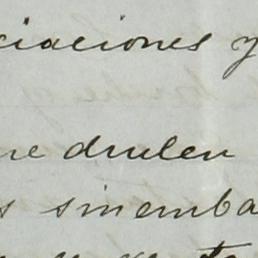 ciaciones y
ne duelen
s sinemba